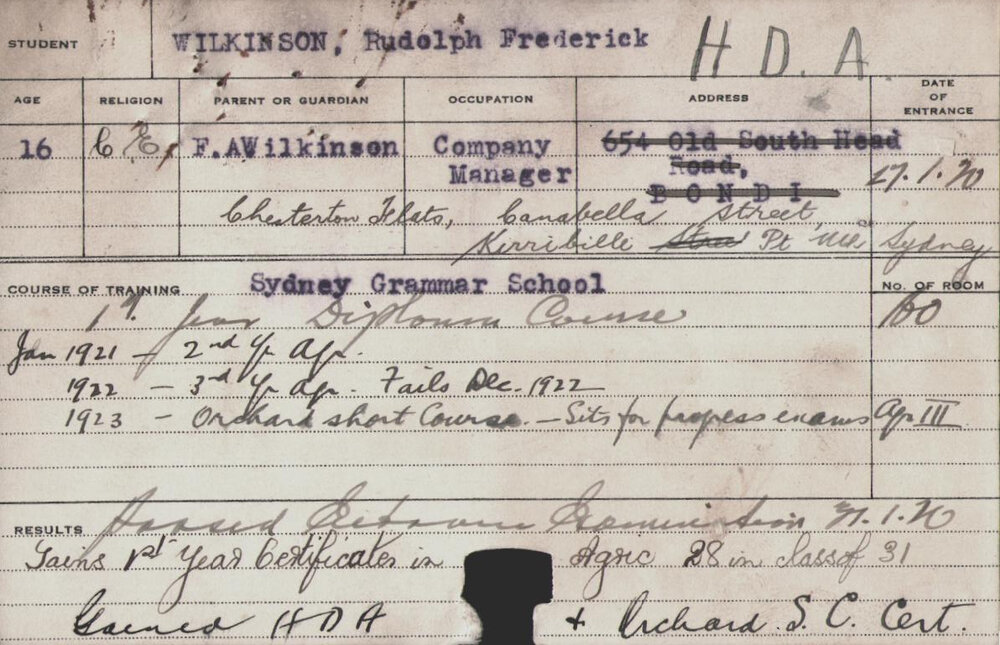 STUDENT WILKINSON, Rudolph Frederick H D. A
AGE RELIGION PARENT OR GUARDIAN OCCUPATION ADDRESS DATE OF ENTRANCE
16 C E, F.AWilkinson Company Manager 654 Old South Head Road, BONDI 27.1.20
Chesterton Flats, Carabella Street
Kirribille Street Pt Sydney
COURSE OF TRAINING Sydney Grammar School No. OF ROOM
1st Year Diploma Course 100
Jan 1921 - 2nd Yr Agr.
1922 - 3rd Yr Agr. Fails Dec. 1922
1923 - Orchard short Course. - Sits for progress exams Agr III
RESULTS Passed Entrance Examination 27.1.20
Gains 1st Year Certificates in Agric 28 in class of 31
Gained HDA + Orchard S. C. Cert.